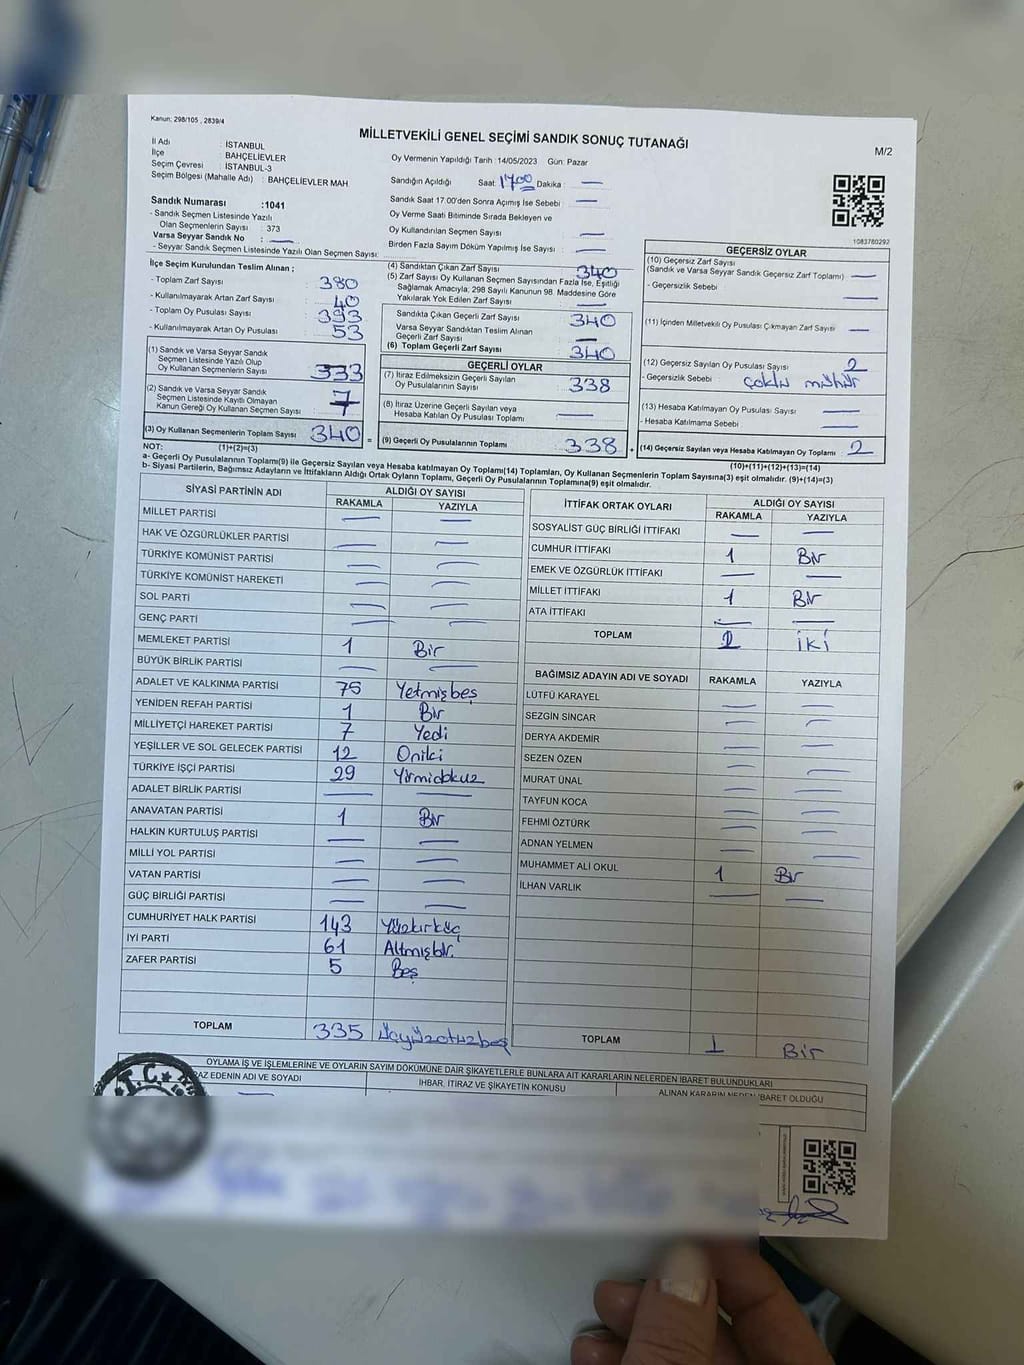 Kanun: 298/105 , 2839/4
MİLLETVEKİLİ GENEL SEÇİMİ SANDIK SONUÇ TUTANAĞI
M/2
İl Adı : İSTANBUL
İlçe : BAHÇELİEVLER
Seçim Çevresi : İSTANBUL-3
Seçim Bölgesi (Mahalle Adı) : BAHÇELİEVLER MAH
Oy Vermenin Yapıldığı Tarih :14/05/2023 Gün: Pazar
Sandığın Açıldığı Saat: 1700 Dakika : —
Sandık Saat 17.00'den Sonra Açımış İse Sebebi : —
Oy Verme Saati Bitiminde Sırada Bekleyen ve
Oy Kullandırılan Seçmen Sayısı : —
Birden Fazla Sayım Döküm Yapılmış İse Sayısı : —
1083780292
Sandık Numarası :1041
- Sandık Seçmen Listesinde Yazılı
Olan Seçmenlerin Sayısı : 373
Varsa Seyyar Sandık No : —
- Seyyar Sandık Seçmen Listesinde Yazılı Olan Seçmen Sayısı:
İlçe Seçim Kurulundan Teslim Alınan ;
- Toplam Zarf Sayısı : 380
- Kullanılmayarak Artan Zarf Sayısı : 40
- Toplam Oy Pusulası Sayısı : 393
- Kullanılmayarak Artan Oy Pusulası : 53
(1) Sandık ve Varsa Seyyar Sandık
Seçmen Listesinde Yazılı Olup
Oy Kullanan Seçmenlerin Sayısı : 333
(2) Sandık ve Varsa Seyyar Sandık
Seçmen Listesinde Kayıtlı Olmayan
Kanun Gereği Oy Kullanan Seçmen Sayısı : 7
(3) Oy Kullanan Seçmenlerin Toplam Sayısı : 340
(4) Sandıktan Çıkan Zarf Sayısı : 340
(5) Zarf Sayısı Oy Kullanan Seçmen Sayısından Fazla İse, Eşitliği
Sağlamak Amacıyla; 298 Sayılı Kanunun 98. Maddesine Göre
Yakılarak Yok Edilen Zarf Sayısı : —
Sandıkta Çıkan Geçerli Zarf Sayısı : 340
Varsa Seyyar Sandıktan Teslim Alınan
Geçerli Zarf Sayısı : —
(6) Toplam Geçerli Zarf Sayısı : 340
GEÇERLİ OYLAR
(7) İtiraz Edilmeksizin Geçerli Sayılan
Oy Pusulalarının Sayısı : 338
(8) İtiraz Üzerine Geçerli Sayılan veya
Hesaba Katılan Oy Pusulası Toplamı : —
= (9) Geçerli Oy Pusulalarının Toplamı : 338
GEÇERSİZ OYLAR
(10) Geçersiz Zarf Sayısı
(Sandık ve Varsa Seyyar Sandık Geçersiz Zarf Toplamı) : —
- Geçersizlik Sebebi : —
(11) İçinden Milletvekili Oy Pusulası Çıkmayan Zarf Sayısı : —
(12) Geçersiz Sayılan Oy Pusulası Sayısı : 2
- Geçersizlik Sebebi : çoklu mühür
(13) Hesaba Katılmayan Oy Pusulası Sayısı : —
- Hesaba Katılmama Sebebi : —
+ (14) Geçersiz Sayılan veya Hesaba Katılmayan Oy Toplamı : 2
NOT: (1)+(2)=(3)
(10)+(11)+(12)+(13)=(14)
a- Geçerli Oy Pusulalarının Toplamı(9) ile Geçersiz Sayılan veya Hesaba katılmayan Oy Toplamı(14) Toplamları, Oy Kullanan Seçmenlerin Toplam Sayısına(3) eşit olmalıdır. (9)+(14)=(3)
b- Siyasi Partilerin, Bağımsız Adayların ve İttifakların Aldığı Ortak Oyların Toplamı, Geçerli Oy Pusulalarının Toplamına(9) eşit olmalıdır.
SİYASİ PARTİNİN ADI ALDIĞI OY SAYISI
RAKAMLA YAZIYLA
MİLLET PARTİSİ — —
HAK VE ÖZGÜRLÜKLER PARTİSİ — —
TÜRKİYE KOMÜNİST PARTİSİ — —
TÜRKİYE KOMÜNİST HAREKETİ — —
SOL PARTİ — —
GENÇ PARTİ — —
MEMLEKET PARTİSİ 1 Bir
BÜYÜK BİRLİK PARTİSİ — —
ADALET VE KALKINMA PARTİSİ 75 Yetmişbeş
YENİDEN REFAH PARTİSİ 1 Bir
MİLLİYETÇİ HAREKET PARTİSİ 7 Yedi
YEŞİLLER VE SOL GELECEK PARTİSİ 12 Oniki
TÜRKİYE İŞÇİ PARTİSİ 29 Yirmidokuz
ADALET BİRLİK PARTİSİ — —
ANAVATAN PARTİSİ 1 Bir
HALKIN KURTULUŞ PARTİSİ — —
MİLLİ YOL PARTİSİ — —
VATAN PARTİSİ — —
GÜÇ BİRLİĞİ PARTİSİ — —
CUMHURİYET HALK PARTİSİ 143 Yüzkırküç
İYİ PARTİ 61 Altmışbir.
ZAFER PARTİSİ 5 Beş
TOPLAM 335 Üçyüzotuzbeş
İTTİFAK ORTAK OYLARI ALDIĞI OY SAYISI
RAKAMLA YAZIYLA
SOSYALİST GÜÇ BİRLİĞİ İTTİFAKI — —
CUMHUR İTTİFAKI 1 Bir
EMEK VE ÖZGÜRLÜK İTTİFAKI — —
MİLLET İTTİFAKI 1 Bir
ATA İTTİFAKI — —
TOPLAM 2 İKİ
BAĞIMSIZ ADAYIN ADI VE SOYADI RAKAMLA YAZIYLA
LÜTFÜ KARAYEL — —
SEZGİN SİNCAR — —
DERYA AKDEMİR — —
SEZEN ÖZEN — —
MURAT ÜNAL — —
TAYFUN KOCA — —
FEHMİ ÖZTÜRK — —
ADNAN YELMEN — —
MUHAMMET ALİ OKUL 1 Bir
İLHAN VARLIK — —
TOPLAM 1 Bir
OYLAMA İŞ VE İŞLEMLERİNE VE OYLARIN SAYIM DÖKÜMÜNE DAİR ŞİKAYETLERLE BUNLARA AİT KARARLARIN NELERDEN İBARET BULUNDUKLARI
RAZ EDENİN ADI VE SOYADI İHBAR, İTİRAZ VE ŞİKAYETİN KONUSU ALINAN KARARIN NEDEN İBARET OLDUĞU
T.C.